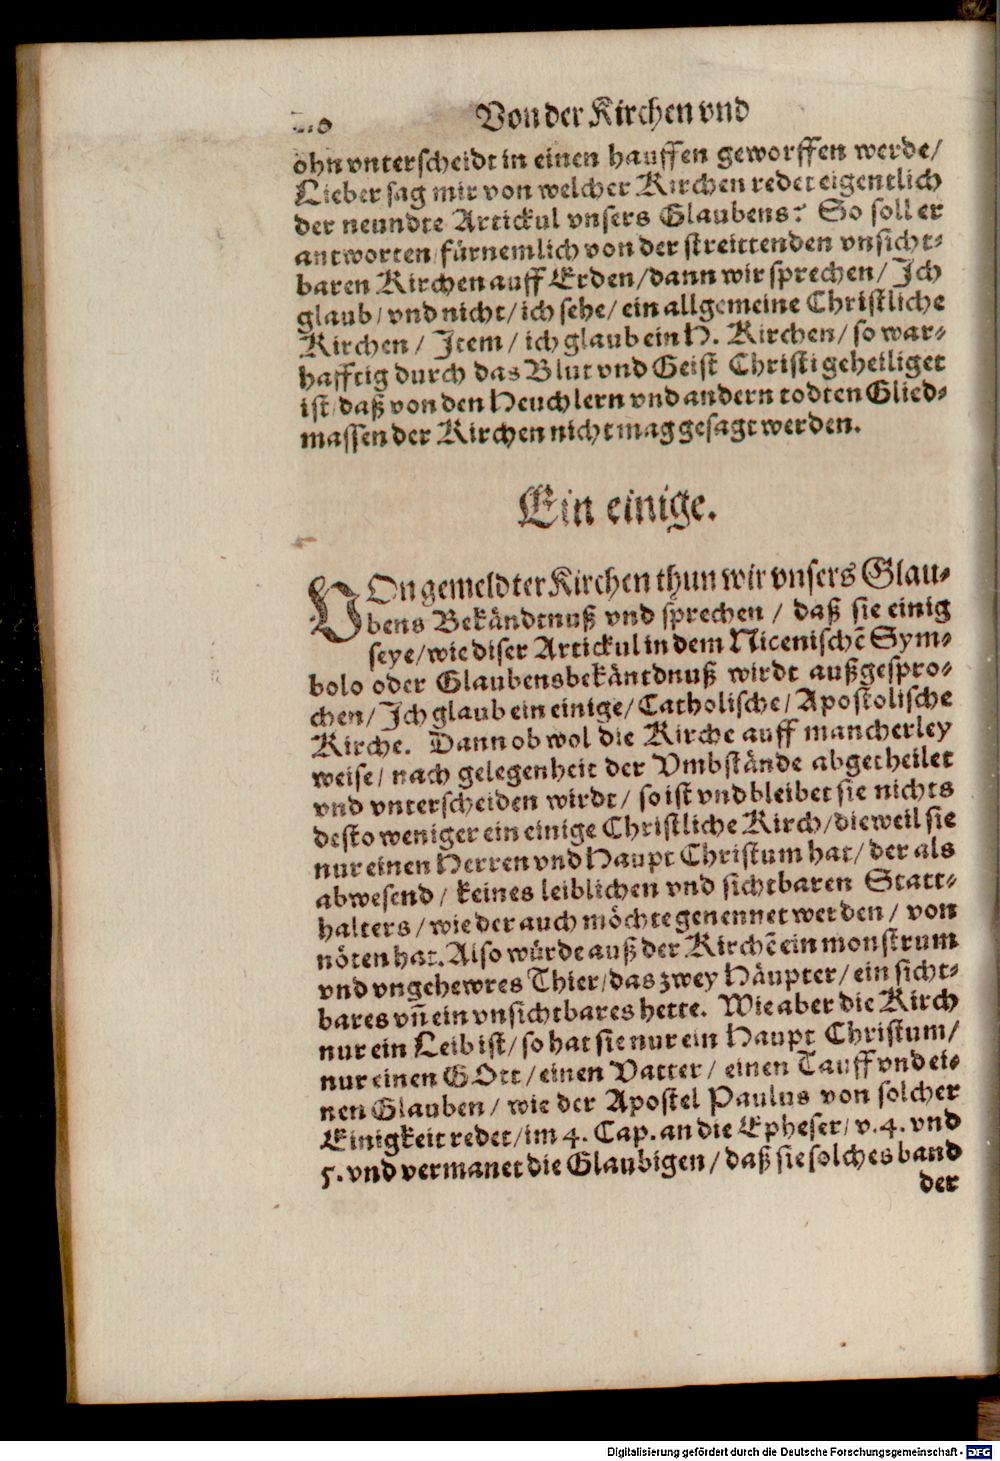 Von der Kirchen vnd
ohn vnterscheidt in einen hauffen geworffen werde/
Lieber sag mir von welcher Kirchen redet eigentlich
der neundte Artickul vnsers Glaubens? So soll er
antworten/ fürnemlich von der streittenden vnsicht⸗
baren Kirchen auff Erden/ dann wir sprechen/ Ich
glaub/ vnd nicht/ ich sehe/ ein allgemeine Christliche
Kirchen/ Item/ ich glaub ein H. Kirchen/ so war⸗
hafftig durch das Blut vnd Geist Christi geheiliget
ist/ daß von den Heuchlern vnd andern todten Glied⸗
massen der Kirchen nicht mag gesagt werden.
Ein einige.
VOn gemeldter Kirchen thun wir vnsers Glau⸗
bens Bekändtnuß vnd sprechen/ daß sie einig
seye/ wie diser Artickul in dem Nicenischẽ Sym⸗
bolo oder Glaubensbekäntdnuß wirdt außgespro⸗
chen/ Ich glaub ein einige/ Catholische/ Apostolische
Kirche. Dann ob wol die Kirche auff mancherley
weise/ nach gelegenheit der Vmbstände abgetheilet
vnd vnterscheiden wirdt/ so ist vnd bleibet sie nichts
desto weniger ein einige Christliche Kirch/ dieweil sie
nur einen Herren vnd Haupt Christum hat/ der als
abwesend/ keines leiblichen vnd sichtbaren Statt⸗
halters/ wie der auch möchte genennet werden/ von
nöten hat. Also würde auß der Kirchẽ ein monstrum
vnd vngehewres Thier/ das zwey Häupter/ ein sicht⸗
bares vñ ein vnsichtbares hette. Wie aber die Kirch
nur ein Leib ist/ so hat sie nur ein Haupt Christum/
nur einen GOtt/ einen Vatter/ einen Tauff vnd ei⸗
nen Glauben/ wie der Apostel Paulus von solcher
Einigkeit redet/ im 4. Cap. an die Epheser/ v. 4. vnd
5. vnd vermanet die Glaubigen/ daß sie solches band
der
Digitalisierung gefördert durch die Deutsche Forschungsgemeinschaft - DFG